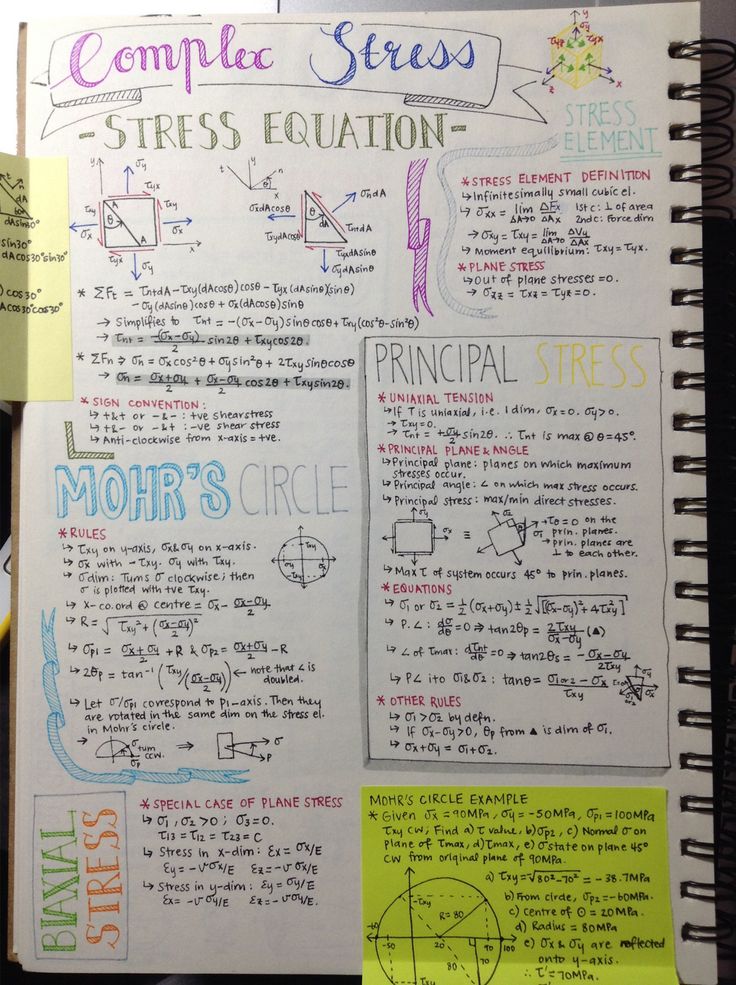 Complex Stress
-STRESS EQUATION-
y
σy
τyx
τxy
A
θ
A
τxy
σx
σx
τyx
σy
x
t
n
θ
σndA
σxdAcosθ
θ
dA
τntdA
τxydAcosθ
τyxdAsinθ
σydAsinθ
* ΣFt = τntdA - τxy(dAcosθ)cosθ - τyx(dAsinθ)(sinθ)
- σy(dAsinθ)cosθ + σx(dAcosθ)sinθ
→ Simplifies to τnt = -(σx-σy)sinθcosθ + τxy(cos²θ-sin²θ)
→ τnt = -(σx-σy)/2 sin2θ + τxycos2θ.
* ΣFn ⇒ σn = σxcos²θ + σysin²θ + 2τxysinθcosθ
→ σn = σx+σy/2 + σx-σy/2 cos2θ + τxysin2θ.
* SIGN CONVENTION:
↳ +&+ or -&- : +ve shear stress
↳ +&- or -&+ : -ve shear stress
↳ Anti-clockwise from x-axis = +ve.
y
σy
τyz
τyx
z
x
STRESS
ELEMENT
* STRESS ELEMENT DEFINITION
↳ Infinitesimally small cubic el.
↳ σxx = lim ΔA→0 ΔFx/ΔAx 1st c: ⊥ of area
2nd c: Force dim
→ σxy = τxy = lim ΔA→0 ΔVy/ΔAx
↳ Moment equilibrium: τxy = τyx.
* PLANE STRESS
↳ Out of plane stresses = 0.
→ σzz = τxz = τyz = 0.
PRINCIPAL STRESS
* UNIAXIAL TENSION
↳ If T is uniaxial, i.e. 1 dim, σx=0. σy>0.
→ τxy=0.
→ τnt = +σy/2 sin2θ. ∴ τnt is max @ θ=45°.
* PRINCIPAL PLANE & ANGLE
↳ Principal plane: planes on which maximum
stresses occur.
↳ Principal angle: ∠ on which max stress occurs.
↳ Principal stress: max/min direct stresses.
σy
σx
≡
σ2
θ
σ1
→ τθ = 0 on the
prin. planes.
→ prin. planes are
⊥ to each other.
↳ Max τ of system occurs 45° to prin. planes.
* EQUATIONS
↳ σ1 or σ2 = ½(σx+σy) ± ½√[(σx-σy)²+4τxy²]
↳ P.∠: dσ/dθ = 0 ⇒ tan2θp = 2τxy/σx-σy (▲)
↳ ∠ of τmax: dτnt/dθ = 0 ⇒ tan2θs = -σx-σy/2τxy
↳ P∠ i to σ1&σ2: tanθ = σ1 or 2 - σx/τxy
* OTHER RULES
↳ σ1 > σ2 by defn.
↳ If σx-σy>0, θp from ▲ is dim of σ1.
↳ σx+σy = σ1+σ2.
MOHR'S CIRCLE
* RULES
↳ τxy on y-axis, σx&σy on x-axis.
↳ σx with -τxy. σy with τxy.
↳ σdim: Turns σ clockwise; then
σ is plotted with +ve τxy.
↳ x-co.ord @ centre = σx - σx-σy/2
↳ R = √τxy²+(σx-σy/2)²
↳ σp1 = σx+σy/2 + R & σp2 = σx+σy/2 - R
↳ 2θp = tan⁻¹(τxy/(σx-σy)/2) ← note that ∠ is
doubled.
↳ Let σ/σp1 correspond to P1-axis. Then they
are rotated in the same dim on the stress el.
in Mohr's circle.
→ σ turn
ccw.
σp
⇒
σ
P
BIAXIAL
STRESS
* SPECIAL CASE OF PLANE STRESS
↳ σ1, σ2 > 0; σ3 = 0.
τ13 = τ12 = τ23 = 0
↳ Stress in x-dim: εx = σx/E
εy = -νσx/E εz = -νσx/E
↳ Stress in y-dim: εy = σy/E
εx = -νσy/E εz = -νσy/E.
MOHR'S CIRCLE EXAMPLE
* Given σx = 90MPa, σy = -50MPa, σp1 = 100MPa
τxy CW; Find a) τ value, b) σp2, c) Normal σ on
plane of τmax, d) τmax, e) σ state on plane 45°
CW from original plane of 90MPa.
a) τxy = √80²-70² = -38.7MPa
b) From circle, σp2 = -60MPa.
c) Centre of ⊙ = 20MPa.
d) Radius = 80MPa
e) σx & σy are reflected
onto y-axis.
∴ τ' = 70MPa.
-τxy
R=80
-60
-50
20
90
100
80
70
τxy
t
n
dA
60°
dAsin30°
sin30°
dAcos30°sin30°
) cos30°
Acos30°cos30°